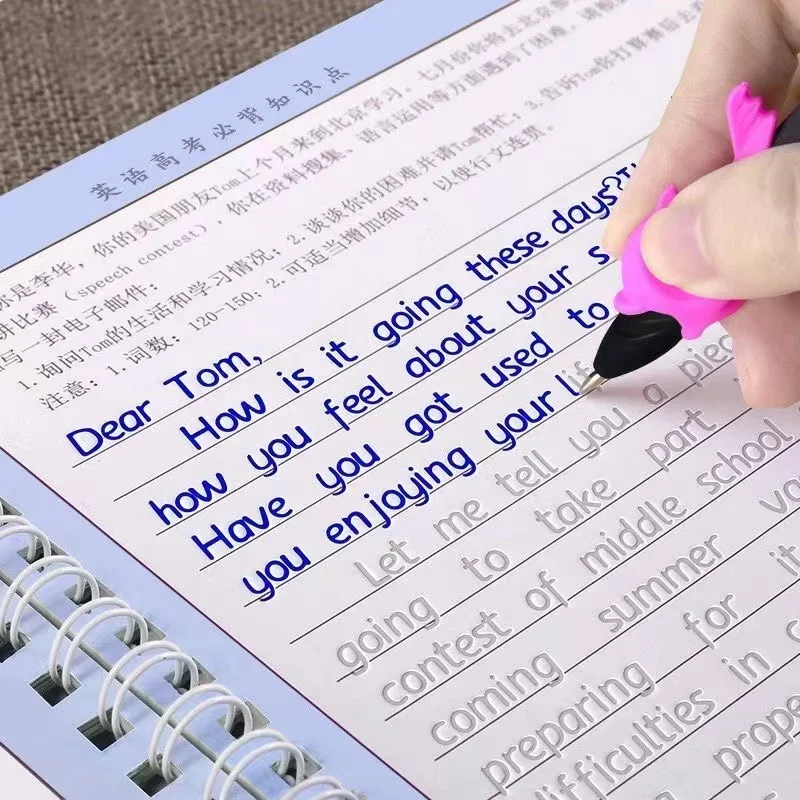 英语高考必背知识点
你是李华，你的美国朋友Tom上个月来到北京学习。七月份你将去北京参
讲比赛（speech contest），你在资料搜集、语言运用等方面遇到了困难。请
写一封电子邮件：
1.询问Tom的生活和学习情况；2.谈谈你的困难并请Tom帮忙；3.告诉Tom你打算赛后去
注意：1.词数：120-150；2.可适当增加细节，以使行文连贯。
Dear Tom,
How is it going these days?
how you feel about your s
Have you got used to
you enjoying your life
Let me tell you a piece
going to take part
contest of middle school
coming summer va
preparing for it
difficulties in
prope